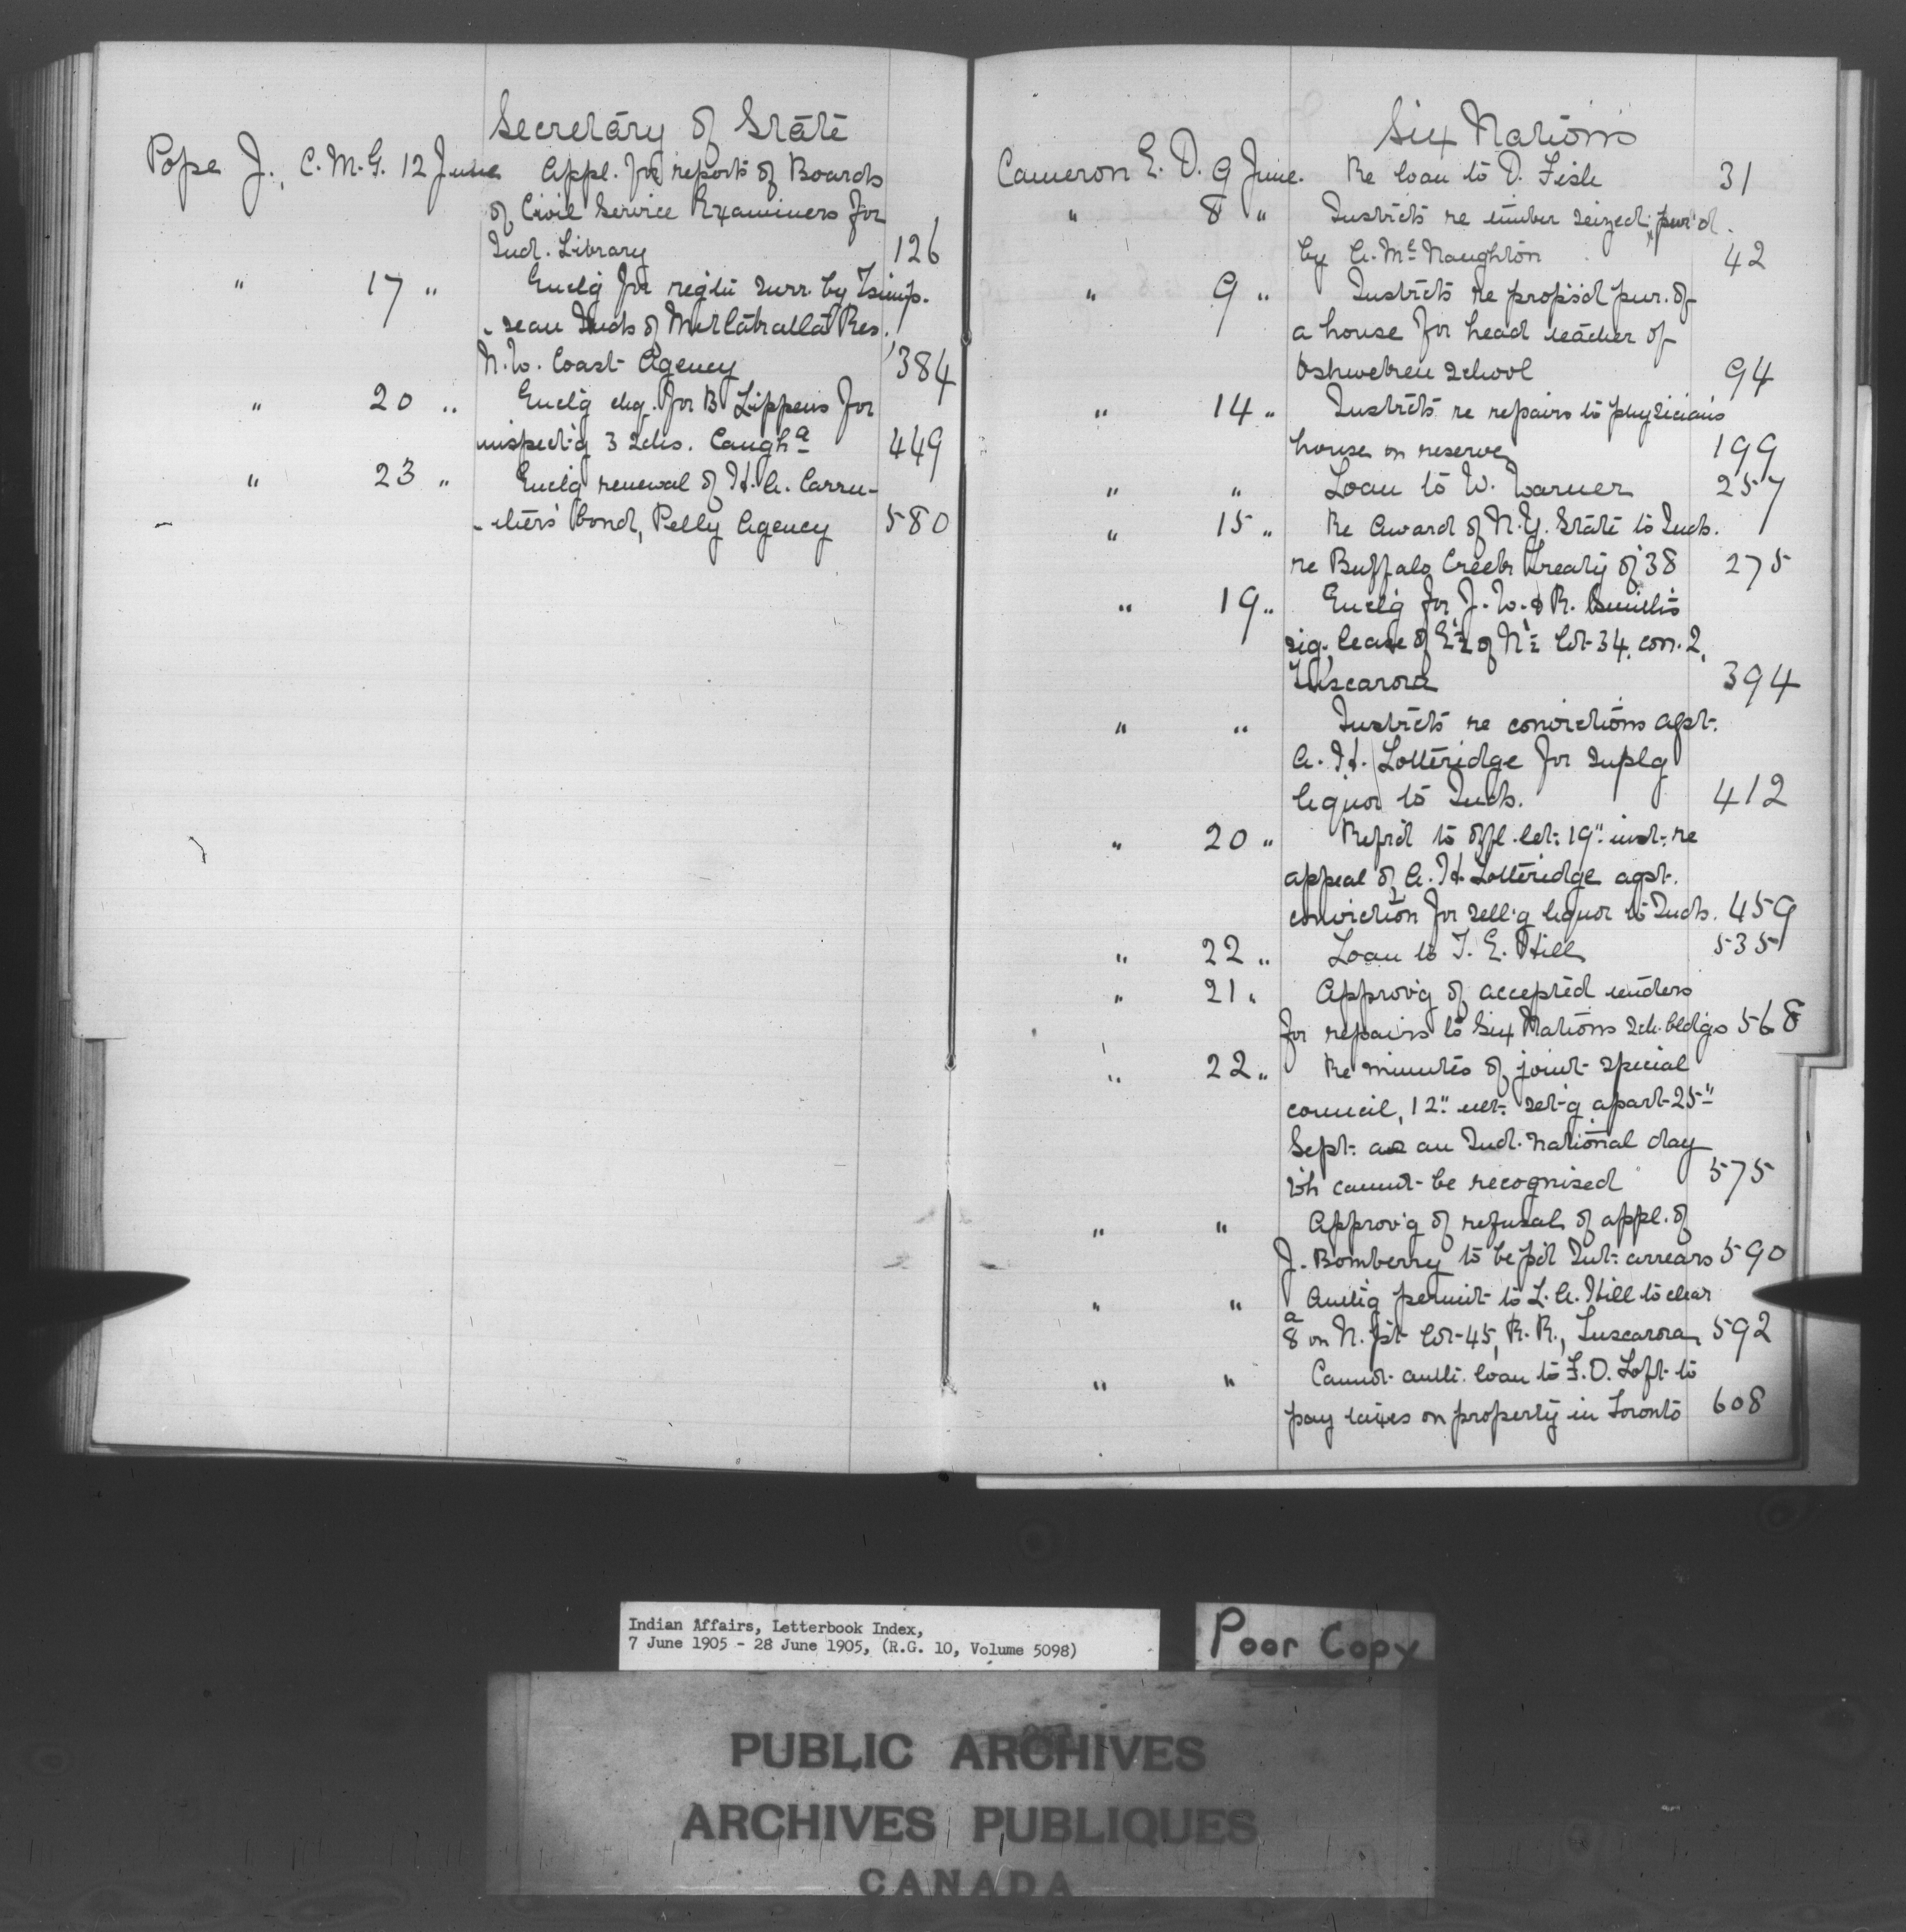 Secretary of State
Pope J., C.M.G. 12 June Appl. for reports of Boards
of Civil Service Examiners for
Ind. Library 126
" 17 " Enclg for regtn surr. by Tsimp-
-sean Inds of Metlakatla Res.,
N.W. Coast Agency 384
" 20 " Encl'g chq. for B Lippens for
inspect'g 3 schs. Caughᵃ 449
" 23 " Encl'g renewal of H.A. Carru-
-thers' bond, Pelly Agency 580
Six Nations
Cameron E. D. 9 June. Re loan to D. Fish 31
" 8 " Instrcts re timber seized, pur'd
by A. McNaughton 42
" 9 " Instrcts re propos'd pur. of
a house for head teacher of
Oshweken school 94
" 14 " Instrcts re repairs to physician's
house on reserve 199
" " Loan to W. Warner 257
" 15 " Re Award of N.Y. State to Inds.
re Buffalo Creek treaty of '38 275
" 19 " Encl'g for J. W. & R. Smith's
sig. lease of E½ of N½ lot 34, con. 2,
Tuscarora 394
" " Instrcts re convictions agst.
A. H. Lotteridge for suplg
liquor to Inds. 412
" 20 " Refr'd to offl. let. 19" inst. re
appeal of A. H. Lotteridge agst.
conviction for sell'g liquor to Inds. 459
" 22 " Loan to T. E. Hill 535
" 21 " Approv'g of accepted tenders
for repairs to Six Nations sch. bldgs 568
" 22 " Re minutes of joint special
council, 12" ult. set'g apart 25"
Sept. as an Ind. national day
wh cannot be recognised 575
" " Approv'g of refusal of appl. of
J. Bomberry to be p'd Int. arrears 590
" " Auth'g permit to L. A. Hill to clear
8ᵃ on N. pt lot 45, R. R., Tuscarora 592
" " Cannot auth. loan to F. O. Loft to
pay taxes on property in Toronto 608
Indian Affairs, Letterbook Index,
7 June 1905 - 28 June 1905, (R.G. 10, Volume 5098)
Poor Copy
PUBLIC ARCHIVES
ARCHIVES PUBLIQUES
CANADA